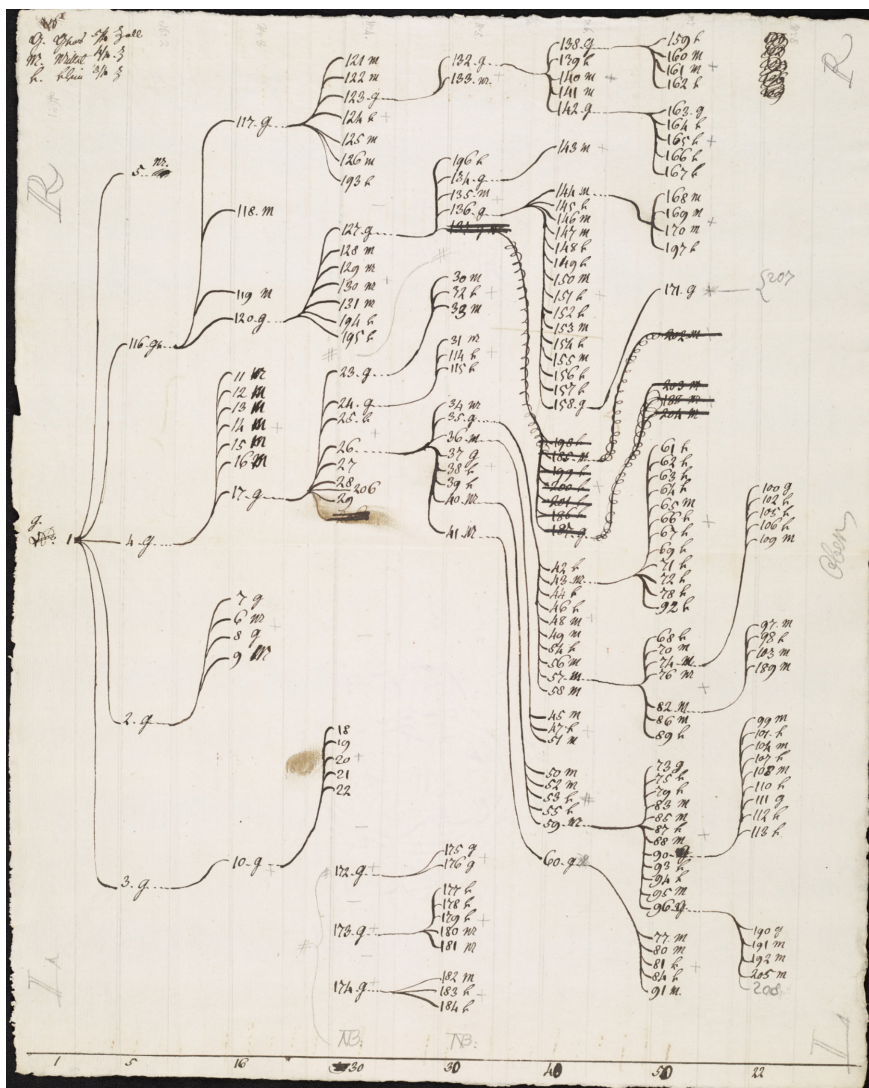 g. Gros 5/10 Zoll
m. Mittel 4/10 Z
k. klein 3/10 Z
R
R
1
5 m.
116 gr.
4. g
2. g
3. g
117. g
118. m
119 m
120. g
11 m
12 m
13 m
14 m
15 m
16 m
17. g
7 g
6 m
8 g
9 m
10. g
121 m
122 m
123. g
124 k
125 m
126 m
193 k
127. g
128 m
129 m
130 m
131 m
194 k
195 k
23. g
24. g
25. k
26
27
28
206
29
18
19
20
21
22
172. g
173. g
174. g
132. g
133. m
196 k
134. g
135. m
136. g
30 m
32 k
33 m
31 m
114 k
115 k
34 m
35. g
36. m
37 g
38 k
39 k
40. m
41. m
175 g
176 g
177 k
178 k
179 k
180 m
181 m
182 m
183 k
184 k
138. g
139 k
140 m
141 m
142. g
143 m
144 m
145 k
146 m
147 m
148 k
149 k
150 m
151 k
152 k
153 m
154 k
155 m
156 k
157 k
158. g
198 k
185. m
199 k
200 k
201 k
186 k
187. g
42 k
43. m
44 k
46 k
48 m
49 m
54 k
56 m
57. m
58 m
45 m
47 k
51 m
50 m
52 m
53 k
55 k
59. m
60. g
159 k
160 m
161 m
162 k
163. g
164 k
165 k
166 k
167 k
168 m
169 m
170 m
197 k
171. g
207
202 m
203 m
188 m
204 m
61 k
62 k
63 k
64 k
65 m
66 k
67 k
69 k
71 k
72 k
78 k
92 k
68 k
70 m
74. m
76 m
82 m
86 m
89 k
73 g
75 k
79 k
83 m
85 m
87 k
88 m
90
93 k
94 k
95 m
96. g
77 m
80 m
81 k
84 k
91 m.
100 g
102 k
105 k
106 k
109 m
97. m
98. k
103 m
189 m
99 m
101 k
104 m
107 k
108 m
110 k
111 g
112 k
113 k
190 g
191 m
192 m
205 m
208
Oben
NB:
NB:
1 5 16 30 30 40 50 22